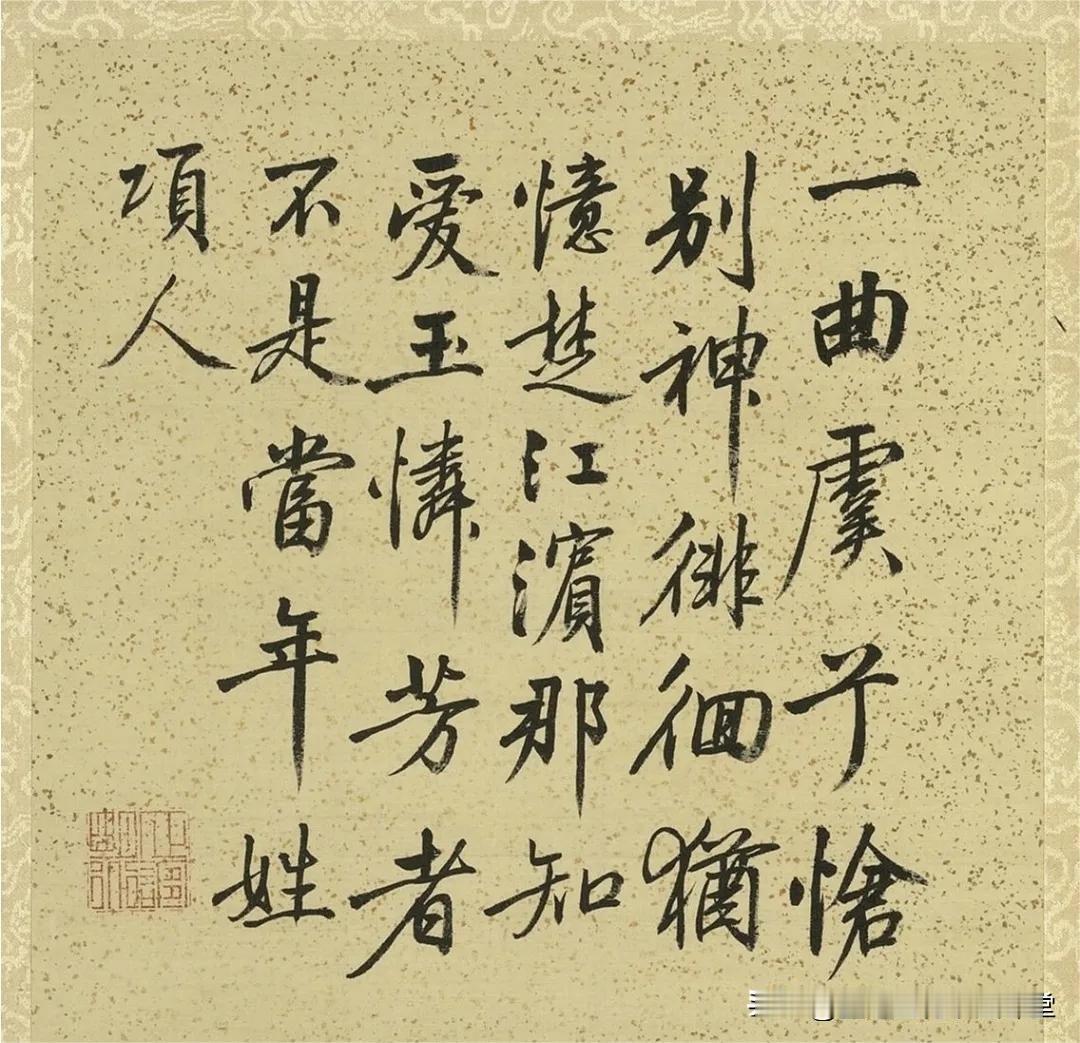 一曲虞兮愴
別神徘徊猶
憶楚江濱那知
愛玉憐芳者
不是當年姓
項人